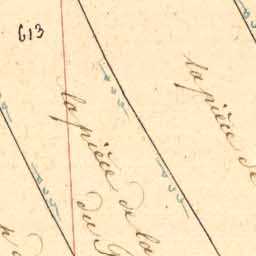 613
la pièce de
la pièce de la
du